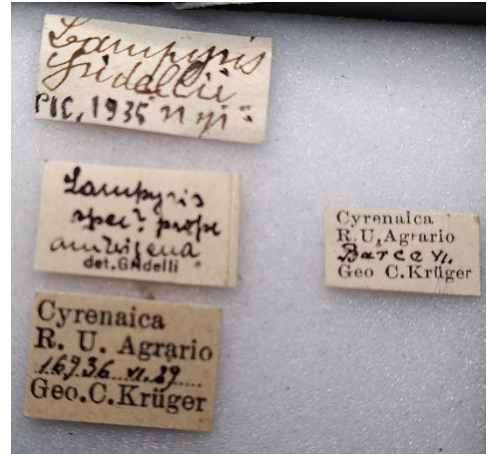 Lampyris
gridellii
PIC, 1935 n. sp.
Lampyris
spec? prope
ambigena
det. Gridelli
Cyrenaica
R. U. Agrario
16936 VI.29
Geo. C. Krüger
Cyrenaica
R. U. Agrario
Barce VI.
Geo C. Krüger